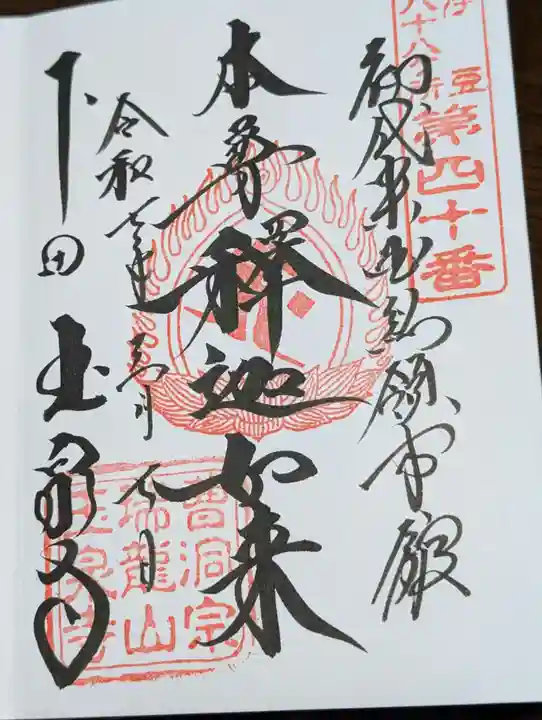 豆
八十八ヶ所
第四十番
初成米国総領事館
本尊釋迦如来
令和
下田玉泉寺
曹洞宗
瑞龍山
玉泉寺